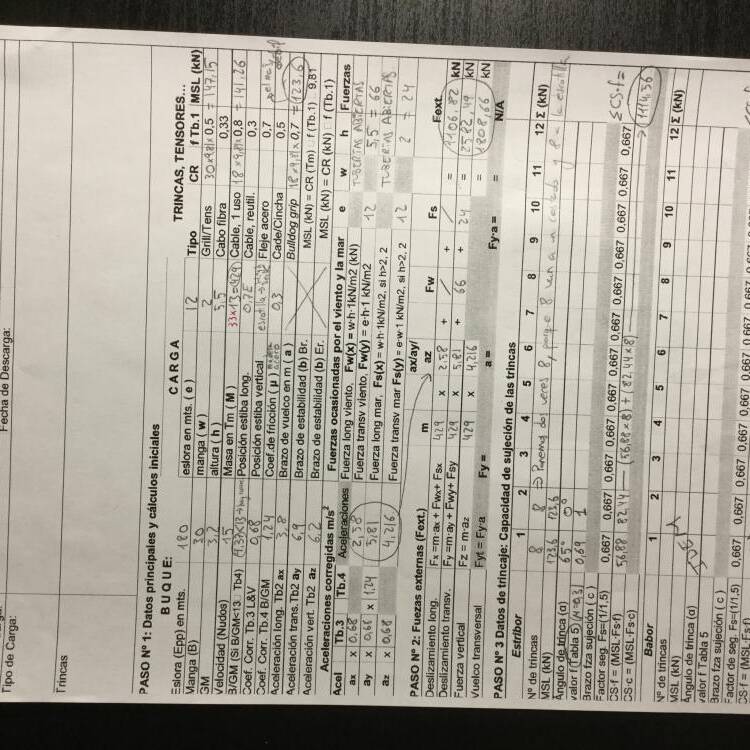 Tipo de Carga:
Fecha de Descarga:
Trincas
PASO Nº 1: Datos principales y cálculos iniciales
BUQUE: CARGA TRINCAS, TENSORES...
Eslora (Epp) en mts. 180 eslora en mts. ( e ) 12 Tipo CR f Tb.1 MSL (kN)
Manga (B) 30 manga ( w ) 2 Grill/Tens 30x9,81 x 0,5 = 147,15
GM 3,2 altura ( h ) 5,5 Cabo fibra 0,33
Velocidad (Nudos) 15 Masa en Tm ( M ) 33x13=429 Cable, 1 uso 18 x 9,81 x 0,8 = 141,26
B/GM (Si B/GM<13, Tb4) Posición estiba long. 0,7L Cable, reutil. 0,3
Coef. Corr. Tb.3 L&V 0,68 Posición estiba vertical Fleje acero 0,7
Coef. Corr. Tb.4 B/GM 1,24 Coef.de fricción ( μ ) 0,3 Cade/Cincha 0,5
Aceleración long. Tb2 ax 3,8 Brazo de vuelco en m ( a ) Bulldog grip 18 x 9,81 x 0,7 = 123,6
Aceleración trans. Tb2 ay 6,9 Brazo de estabilidad (b) Br. MSL (kN) = CR (Tm) · f (Tb.1) · 9,81
Aceleración vert. Tb2 az 6,2 Brazo de estabilidad (b) Er. MSL (kN) = CR (kN) · f (Tb.1)
Aceleraciones corregidas m/s² Fuerzas ocasionadas por el viento y la mar e w h Fuerzas
Acel Tb.3 Tb.4 Aceleraciones Fuerza long viento. Fw(x) = w·h·1kN/m2 (kN) TUBERIAS ABIERTAS
ax x 0,68 2,58 Fuerza transv viento. Fw(y) = e·h·1 kN/m2 12 5,5 = 66
ay x 0,68 x 1,24 5,81 Fuerza long mar. Fs(x) = w·h·1kN/m2, si h>2, 2 TUBERIAS ABIERTAS
az x 0,68 4,216 Fuerza transv mar Fs(y) = e·w·1 kN/m2, si h>2, 2 12 2 = 24
PASO Nº 2: Fuezas externas (Fext.) m ax/ay/az Fw Fs Fext.
Deslizamiento long. Fx=m·ax + Fwx+ Fsx 429 x 2,58 + / + / = 1106,82 kN
Deslizamiento transv. Fy =m·ay + Fwy+ Fsy 429 x 5,81 + 66 + 24 = 2582,49 kN
Fuerza vertical Fz = m·az 429 x 4,216 = 1808,66 kN
Vuelco transversal Fyt = Fy·a Fy = a = Fy·a = kN
PASO Nº 3 Datos de trincaje: Capacidad de sujeción de las trincas N/A
Estribor 1 2 3 4 5 6 7 8 9 10 11 12 Σ (kN)
Nº de trincas 8 8
MSL (kN) 123,6 123,6
Ángulo de trinca (α) 65° 0°
Valor f (Tabla 5) 0,69 1
Brazo fza sujeción ( c )
Factor seg. Fs=(1/1,5) 0,667 0,667 0,667 0,667 0,667 0,667 0,667 0,667 0,667 0,667 0,667 0,667
CS·f = (MSL·Fs·f) 56,88 82,44 (56,88 x 8) + (82,44 x 8) ΣCS·f=
CS·c = (MSL·Fs·c) 1114,56
Babor 1 2 3 4 5 6 7 8 9 10 11 12 Σ (kN)
Nº de trincas
MSL (kN)
Ángulo de trinca (α)
Valor f Tabla 5
Brazo fza sujeción ( c )
Factor de seg. Fs=(1/1,5) 0,667 0,667 0,667 0,667 0,667 0,667 0,667 0,667 0,667 0,667 0,667